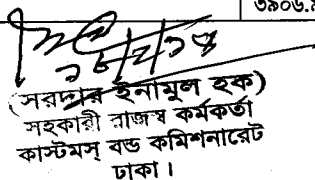 (সরদার ইনামুল হক)
সহকারী রাজস্ব কর্মকর্তা
কাস্টমস্ বন্ড কমিশনারেট
ঢাকা।